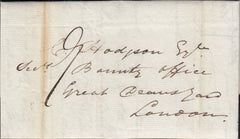 Hodgson Esqre
Bounty Office
Great Deans Yard
London.